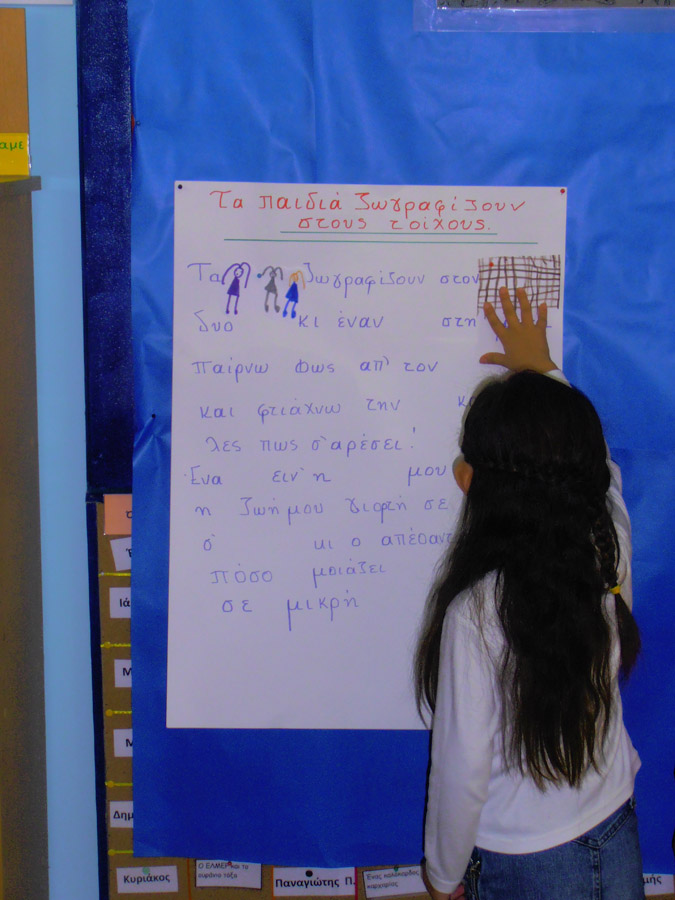 αμε
Τα παιδιά ζωγραφίζουν
στους τοίχους.
Τα ζωγραφίζουν στον
δυο κι έναν στη
παίρνω φως απ' τον
και φτιάχνω την κα
λες πως σ' αρέσει!
Ένα ειν' η μου
η ζωή μου γιορτή σε
σ' κι ο απέθαντ
πόσο μοιάζει
σε μικρή
Ιά
Μ
Μ
Δημ
Κυριάκος
Ο ΕΛΜΕΡ και το
ουράνιο τόξο
Παναγιώτης Π.
Ένας καλόκαρδος
μής